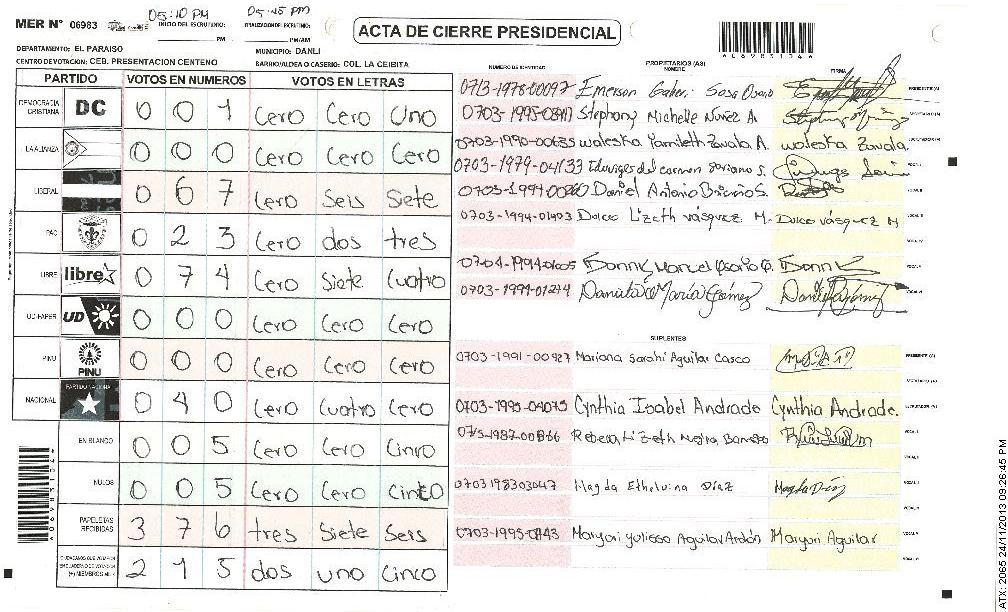 MER N° 06983
05:10 PM
05:45 PM
INICIO DEL ESCRUTINIO:
FINALIZACION DEL ESCRUTINIO:
PM
PM/AM
ACTA DE CIERRE PRESIDENCIAL
DEPARTAMENTO: EL PARAISO
MUNICIPIO: DANLI
CENTRO DE VOTACION: CEB. PRESENTACION CENTENO
BARRIO/ALDEA O CASERIO: COL. LA CEIBITA
PARTIDO VOTOS EN NUMEROS VOTOS EN LETRAS
DEMOCRACIA CRISTIANA DC 0 0 1 Cero Cero Uno
LA ALIANZA 0 0 0 Cero Cero Cero
LIBERAL 0 6 7 Cero Seis Siete
PAC 0 2 3 Cero dos tres
LIBRE libre 0 7 4 Cero Siete Cuatro
UD-FAPER UD 0 0 0 Cero Cero Cero
PINU PINU 0 0 0 Cero Cero Cero
NACIONAL PARTIDO NACIONAL 0 4 0 Cero Cuatro Cero
EN BLANCO 0 0 5 Cero Cero Cinco
NULOS 0 0 5 Cero Cero Cinco
PAPELETAS RECIBIDAS 3 7 6 tres Siete Seis
2 1 5 dos uno Cinco
NUMERO DE IDENTIDAD
PROPIETARIOS (AS)
NOMBRE
FIRMA
0713-1978-00097 Emerson Sosa
0703-1995- Stephany Michelle Nuñez A.
0703-1990-00635 Waleska Yamileth Zavala A. Waleska Zavala.
0703-1979-04133 Eduviges del carmen Soriano S.
Daniel Antonio S.
0703-1994-01403 Dulce Lizeth Vásquez M. Dulce Vásquez M
0704-1994- Manuel
0703-1991-01244 Daniela María Gómez
SUPLENTES
0703-1991-00927 Mariana Sarahi Aguilar Casco
0703-1995-04075 Cynthia Isabel Andrade Cynthia Andrade.
Rebeca Lizeth
0703198303047 Magda Ethelvina Díaz Magda Díaz
0703-1995- Maryuri Yulissa Aguilar Maryuri Aguilar
ATX: 2065 24/11/2013 09:26:45 PM